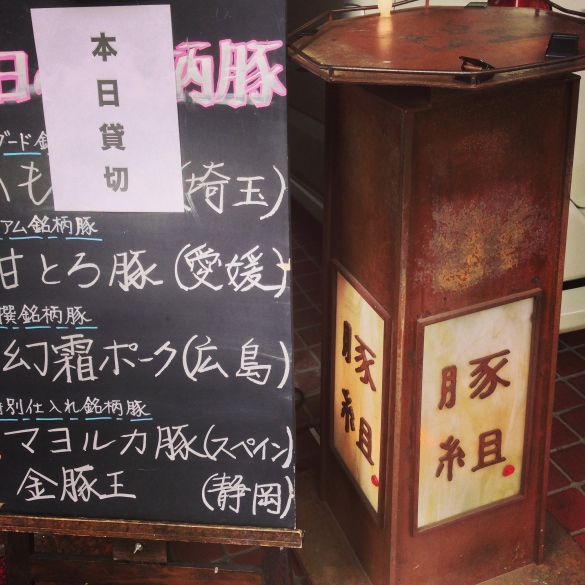 本日貸切
日の 柄豚
ード銘
も (埼玉)
アム銘柄豚
甘とろ豚(愛媛)
撰銘柄豚
幻霜ポーク(広島)
別仕入れ銘柄豚
マヨルカ豚(スペイン)
金豚王 (静岡)
豚組
豚組